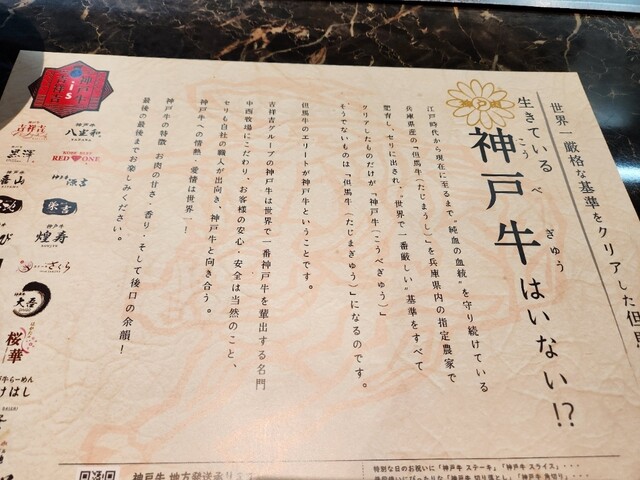 世界一厳格な基準をクリアした但馬
生きている
神戸牛はいない!?
こう
べ
ぎゅう
江戸時代から現在に至るまで"純血の血統"を守り続けている
兵庫県産の「但馬牛(たじまうし)」を兵庫県内の指定農家で
肥育し、セリに出され、"世界で一番厳しい"基準をすべて
クリアしたものだけが「神戸牛(こうべぎゅう)」
そうでないものは「但馬牛(たじまぎゅう)」になるのです。
但馬牛のエリートが神戸牛ということです。
吉祥吉グループの神戸牛は世界で一番神戸牛を輩出する名門
中西牧場にこだわり、お客様の安心・安全は当然のこと、
セリも自社の職人が出向き、神戸牛と向き合う。
神戸牛への情熱・愛情は世界一!
神戸牛の特徴 お肉の甘さ・香り・そして後口の余韻!
最後の最後までお楽しみください。
神戸牛
is
吉祥吉
吉祥吉
神戸牛
八坐和
RED♥ONE
喜山
神戸牛
煌寿
さくら
大吾
桜華
牛らーめん
けはし
神戸牛 地方発送承ります
特別な日のお祝いに「神戸牛 ステーキ」「神戸牛 スライス」・・・
「神戸牛 切り落とし」「神戸牛 角切り」・・・